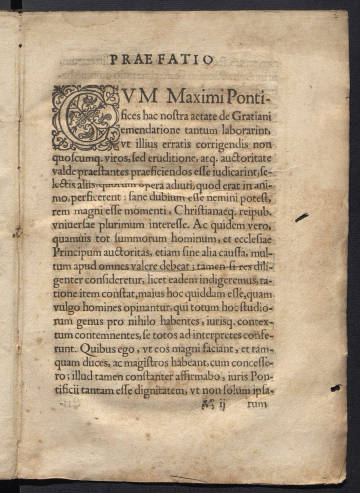 PRAEFATIO
CVM Maximi Ponti-
fices hac nostra aetate de Gratiani
emendatione tantum laborarint,
vt illius erratis corrigendis non
quoscumq. viros, sed eruditione, atq. auctoritate
valde praestantes praeficiendos esse iudicarint, se-
lectis aliis quorum opera adiuti, quod erat in ani-
mo, perficerent: sane dubium esse nemini potest,
rem magni esse momenti, Christianaeq. reipub.
vniuersae plurimum interesse. Ac quidem vero,
quamuis tot summorum hominum, et ecclesiae
Principum auctoritas, etiam sine alia caussa, mul-
tum apud omnes valere debeat; tamen si res dili-
genter consideretur, licet eadem indigeremus, ra-
tione item constat, maius hoc quiddam esse, quam
vulgo homines opinantur, qui totum hoc studio-
rum genus pro nihilo habentes, iurisq. contex-
tum contemnentes, se totos ad interpretes confe-
runt. Quibus ego, vt eos magni faciant, et tam-
quam duces, ac magistros habeant, cum concesse-
ro; illud tamen constanter affirmabo, iuris Pon-
tificii tantam esse dignitatem, vt non solum ipsa-
ij rum